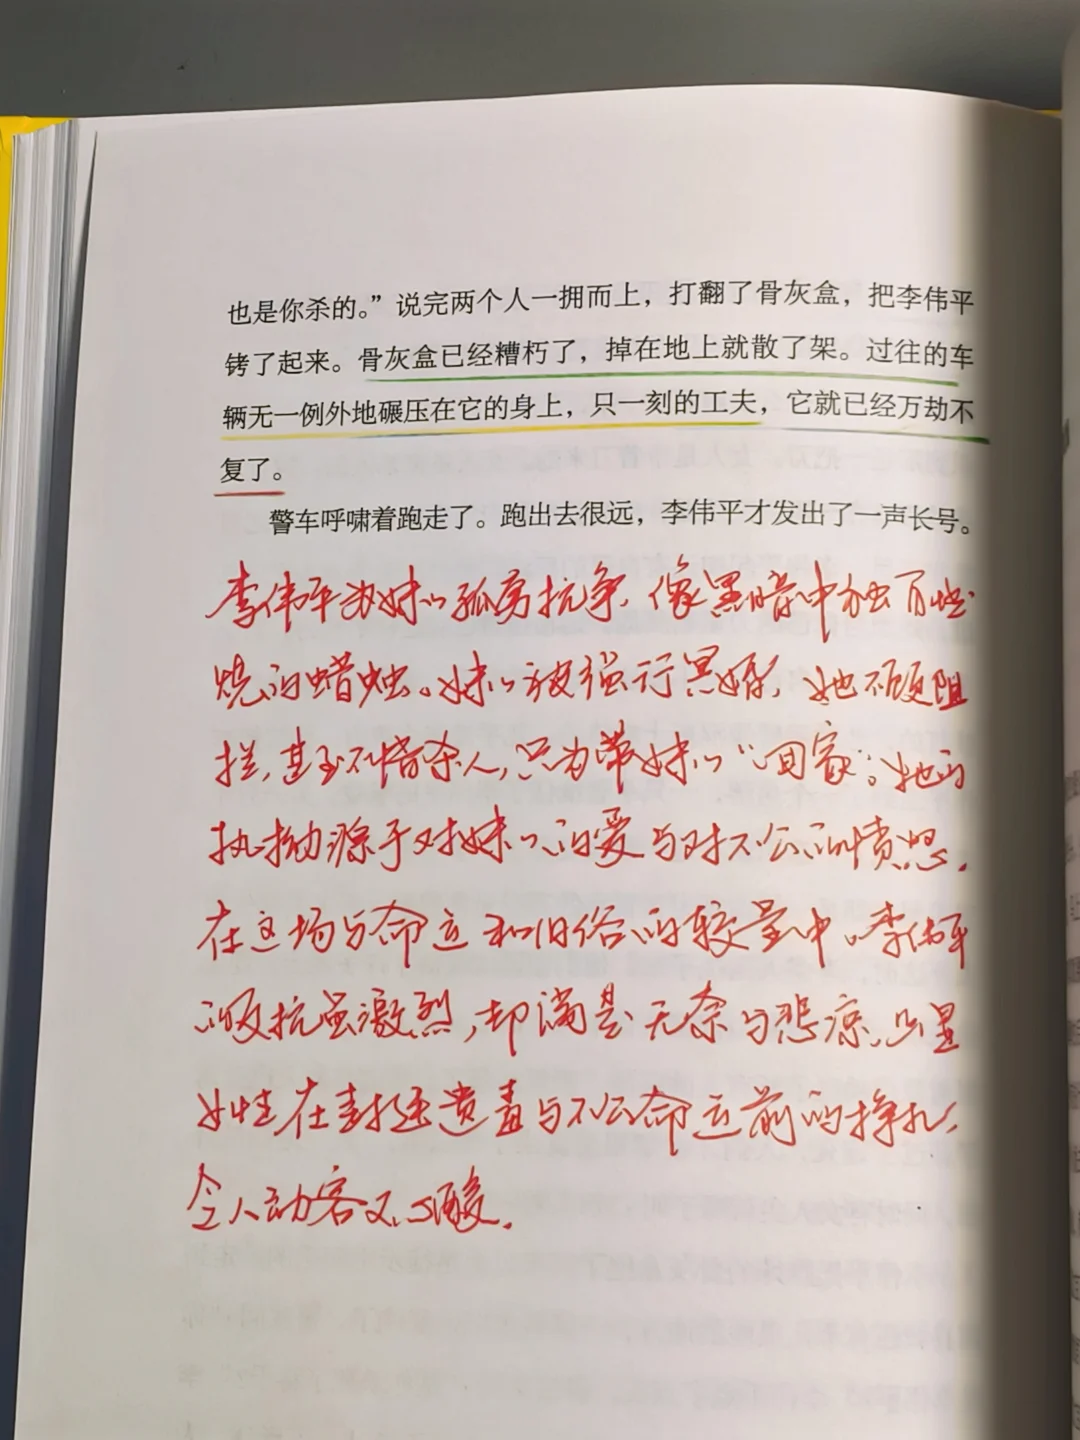 也是你杀的。”说完两个人一拥而上，打翻了骨灰盒，把李伟平
铐了起来。骨灰盒已经糟朽了，掉在地上就散了架。过往的车
辆无一例外地碾压在它的身上，只一刻的工夫，它就已经万劫不
复了。
警车呼啸着跑走了。跑出去很远，李伟平才发出了一声长号。
李伟平为妹妹孤勇抗争，像黑暗中独自燃
烧的蜡烛。妹妹被强行冥婚，她不顾阻
拦，甚至不惜杀人，只为带妹妹“回家”；她的
执拗源于对妹妹的爱与对不公的愤怒。
在这场与命运和旧俗的较量中。李伟平
的反抗虽激烈，却满是无奈与悲凉，
女性在封建遗毒与不公命运前的挣扎，
令人动容又心酸。